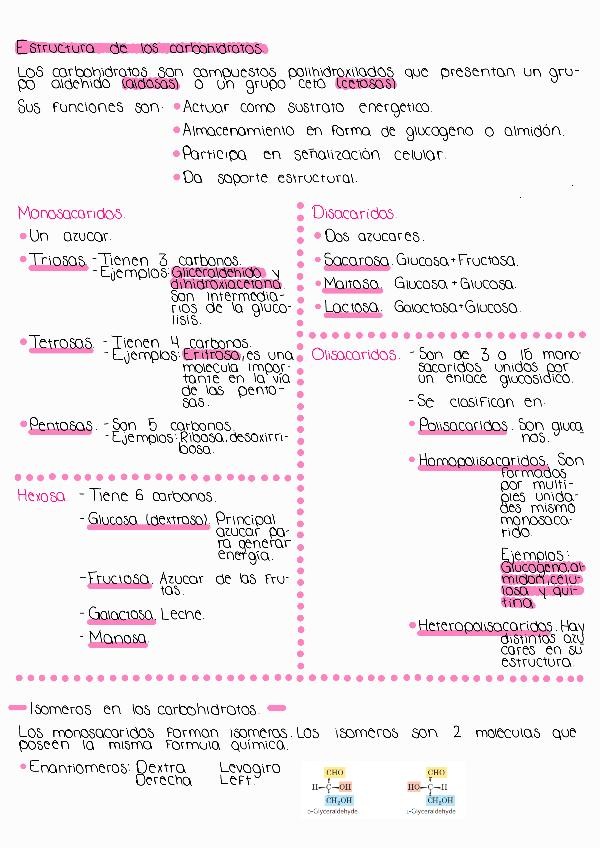 Estructura de los carbohidratos.
Los carbohidratos son compuestos polihidroxilados que presentan un gru-
po aldehido (aldosas) o un grupo ceto (cetosas)
Sus funciones son: • Actuar como sustrato energetico.
• Almacenamiento en forma de glucogeno o almidón.
• Participa en señalización celular.
• Da soporte estructural.
Monosacaridos.
• Un azucar.
• Triosas - Tienen 3 carbonos.
- Ejemplos: Gliceraldehido y
dihidroxiacetona
Son intermedia-
rios de la gluco-
lisis.
• Tetrosas - Tienen 4 carbonos.
- Ejemplos: Eritrosa, es una
molecula impor-
tante en la via
de las pento-
sas.
• Pentosas. - Son 5 carbonos.
- Ejemplos: Ribosa, desoxirri-
bosa.
Hexosa - Tiene 6 carbonos.
- Glucosa (dextrosa) Principal
azucar pa-
ra generar
energia.
- Fructosa. Azucar de las fru-
tas.
- Galactosa. Leche.
- Manosa.
Disacaridos.
• Dos azucares.
• Sacarosa. Glucosa+Fructosa.
• Maltosa. Glucosa+Glucosa.
• Lactosa. Galactosa+Glucosa.
Olisacaridos. - Son de 3 a 16 mono-
sacaridos unidos por
un enlace glucosidico.
- Se clasifican en:
• Polisacaridos. Son gluca
nos.
• Homopolisacaridos. Son
formados
por multi-
ples unida-
des mismo
monosaca-
rido.
Ejemplos:
Glucogeno, al
midon, celu-
losa y qui-
tina.
• Heteropolisacaridos. Hay
distintos azu
cares en su
estructura.
Isomeros en los carbohidratos.
Los monosacaridos forman isomeros. Los isomeros son 2 moleculas que
poseen la misma formula quimica.
• Enantiomeros: Dextra Levogiro
Derecha Left.
CHO CHO
H—C—OH HO—C—H
CH₂OH CH₂OH
D-Glyceraldehyde L-Glyceraldehyde